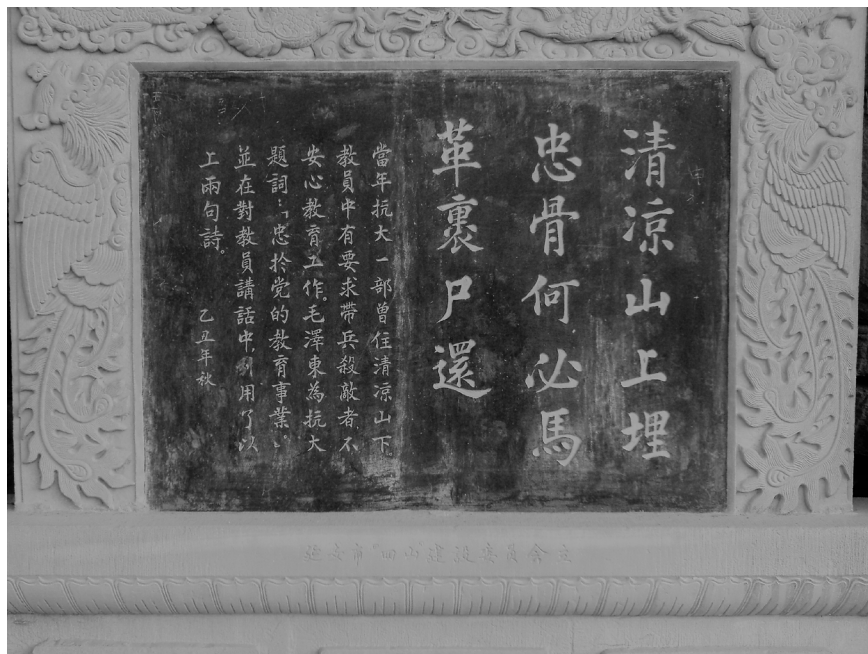 清凉山上埋
忠骨何必馬
革裹尸還
當年抗大一部曾住清凉山下
教員中有要求帶兵殺敵者不
安心教育工作。毛澤東為抗大
題詞：“忠於党的教育事業”
並在對教員講話中，引用了以
上兩句詩。
乙丑年秋
延安市"四山"建設委員會立